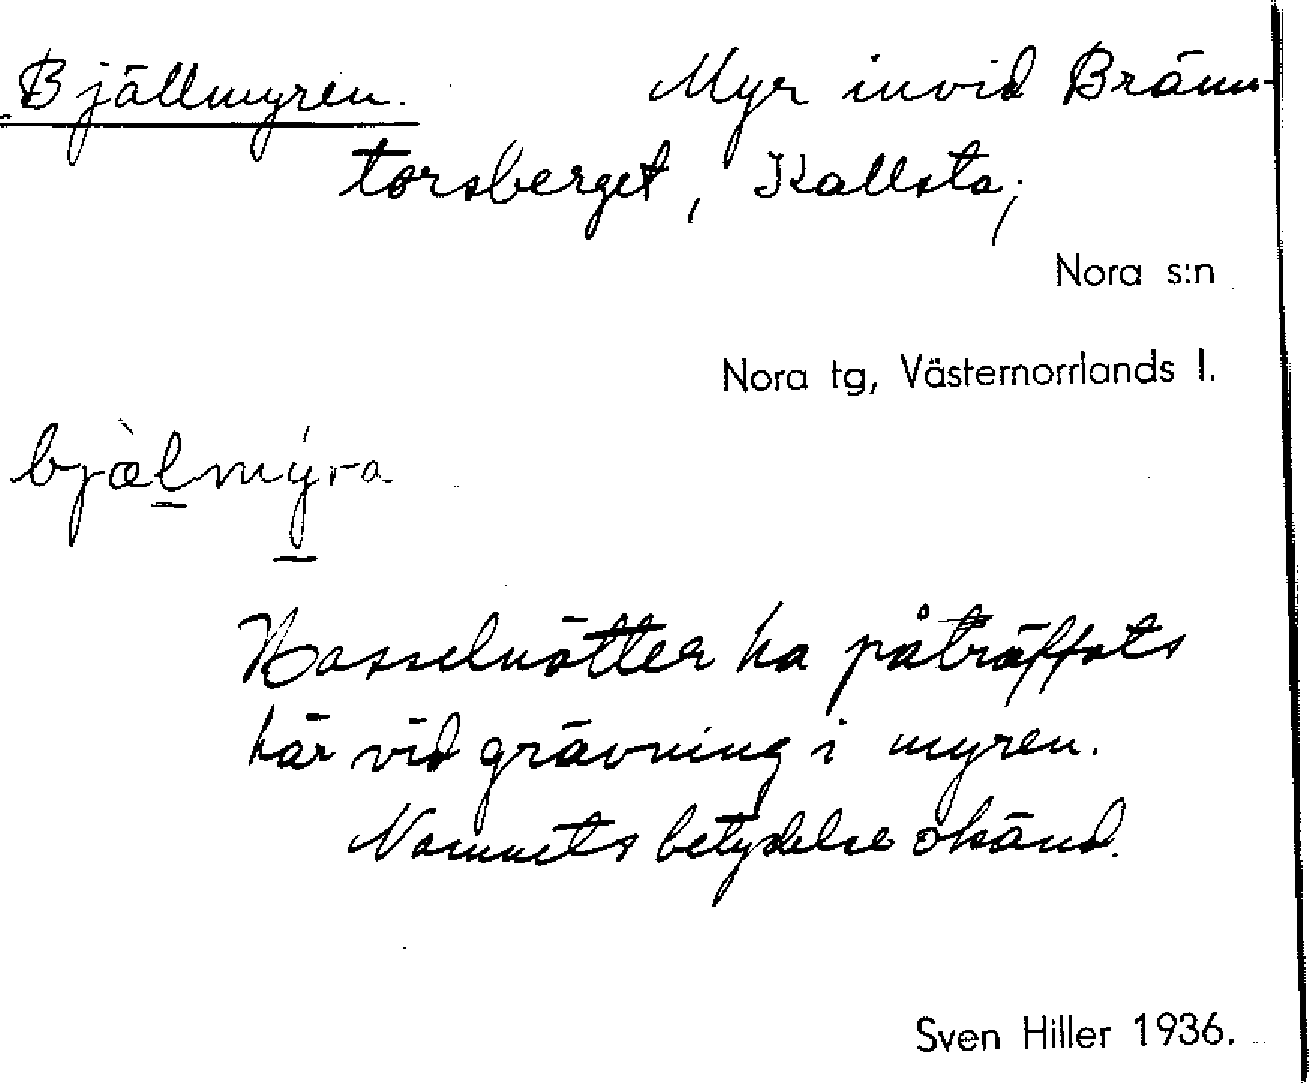 Bjällmyren. Myr invid Bränn-
torsberget, Kallsta;
Nora s:n
Nora tg, Västernorrlands l.
bjælmýra
Hasselnötter ha påträffats
här vid grävning i myren.
Namnets betydelse okänd.
Sven Hiller 1936.